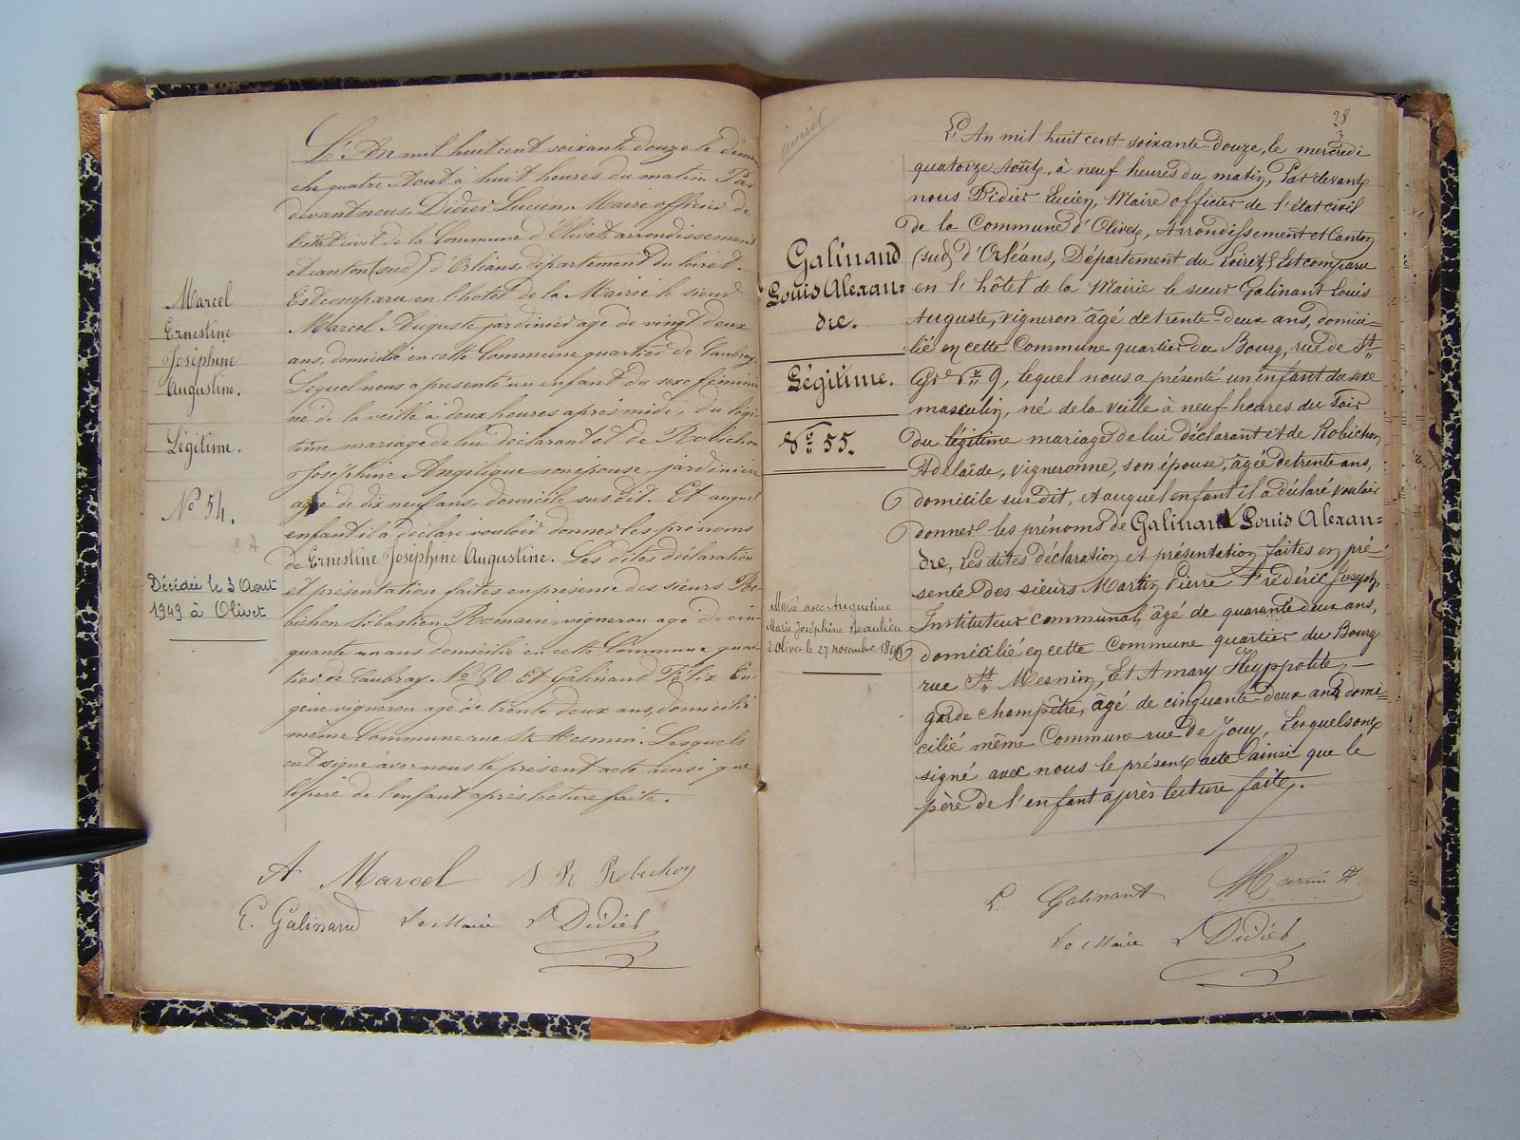 Marcel
Ernestine
Joséphine
Augustine.
Légitime.
No 54.
Décédée le 3 Aout
1949 à Olivet
L'An mil huit cent soixante douze le diman
che quatre Aout à huit heures du matin Par
devant nous Didier Lucien Maire officier de
l'état civil de la Commune d'Olivet arrondissement
et canton (sud) d'Orléans, département du Loiret.
Est comparu en l'hôtel de la Mairie le sieur
Marcel Auguste jardinier agé de vingt deux
ans, domicilié en cette Commune quartier de Caubray
Lequel nous a présenté un enfant du sexe fémini
né de la veille à deux heures après midi, du légi
time mariage de lui déclarant et de Robichon
Joséphine Angélique son épouse, jardinière
agée de dix neuf ans, domicile susdit. Et auquel
enfant il a déclaré vouloir donner les prénoms
de Ernestine Joséphine Augustine. Les dites déclaration
et présentation faites en présence des sieurs Ro
bichon Sébastien Romain, vigneron agé de cin
quante un ans domicilié en cette Commune quar
tier de Caubray No 60 Et Galinand Félix Eu
gène vigneron agé de trente deux ans, domicilié
même Commune rue St Mesmin. Lesquels
ont signé avec nous le présent acte ainsi que
le père de l'enfant après lecture faite.
A Marcel S R Robichon
E. Galinand Le Maire L Didier
28
Galinand
Louis Alexan=
dre.
Légitime.
No 55.
Marié avec Augustine
Marie Joséphine Beaulieu
à Olivet le 27 novembre
L'An mil huit cent soixante-Douze, le mercredi
quatorze Août, à neuf heures du matin, Par devant
nous Didier Lucien, Maire officier de l'état civil
de la Commune d'Olivet, Arrondissement et Canton
(sud) d'Orléans, Département du Loiret, Est comparu
en l'hôtel de la Mairie le sieur Galinant Louis
Auguste, vigneron âgé de trente-deux ans, domici=
lié en cette Commune quartier du Bourg, rue de St
no 9, lequel nous a présenté un enfant du sexe
masculin, né de la veille à neuf heures du soir
du légitime mariage de lui déclarant et de Robichon,
Adelaïde, vigneronne, son épouse, âgée de trente ans,
domicile sur dit, et auquel enfant il a déclaré vouloir
donner les prénoms de Galinand Louis Alexan=
dre, Les dites déclaration et présentation faites en pré=
sente des sieurs Martin Pierre Frédéric Joseph,
Instituteur communal, âgé de quarante deux ans,
domicilié en cette Commune quartier du Bourg
rue St Mesmin, Et Amary Hyppolite, —
garde champêtre, âgé de cinquante-deux ans domi=
cilié même Commune rue de Jouy, Lesquels ont
signé avec nous le présent acte ainsi que le
père de l'enfant après lecture faite.
L. Galinant Martin
Le Maire L Didier